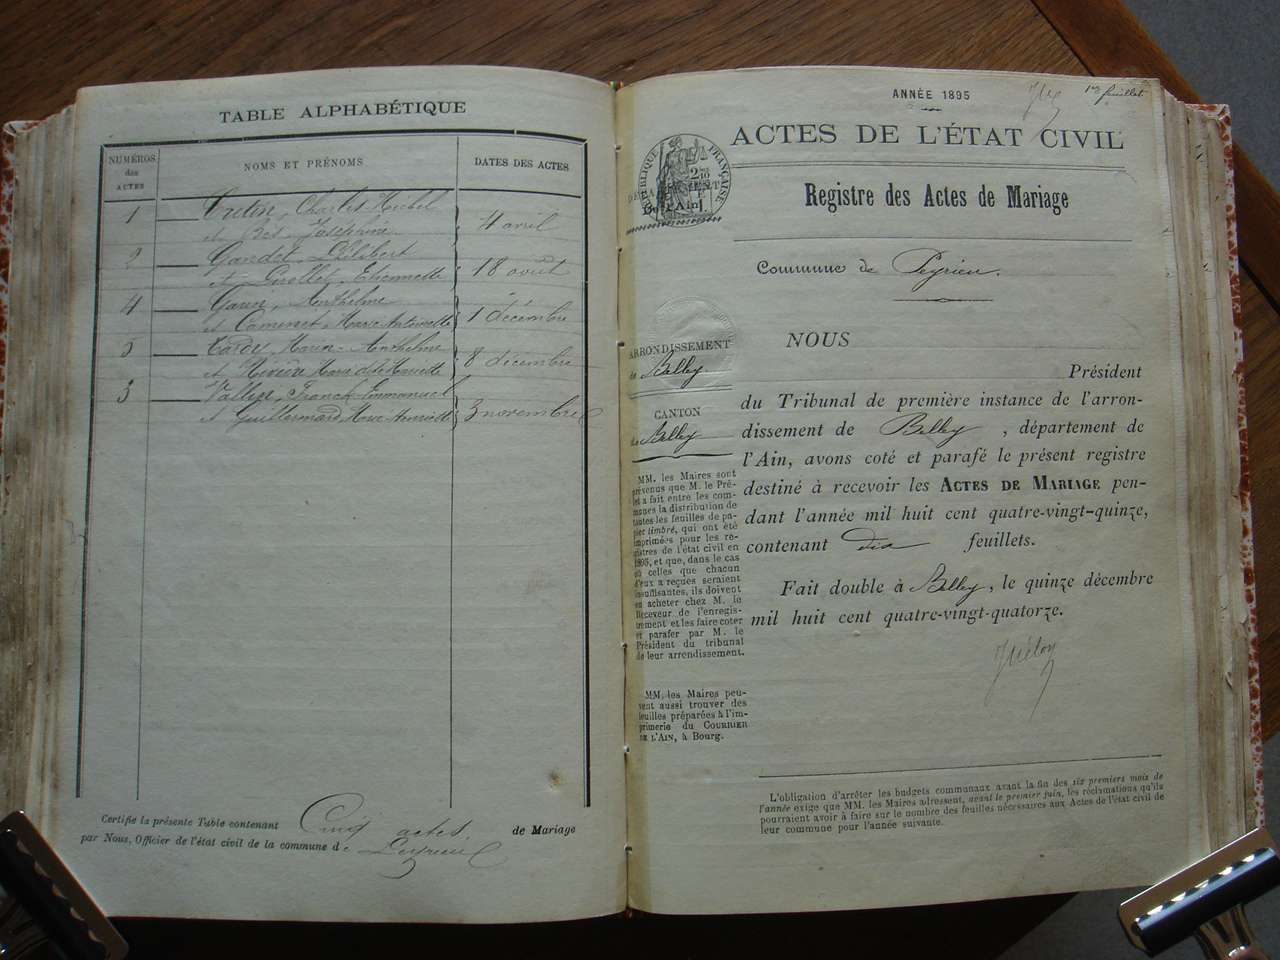 TABLE ALPHABÉTIQUE
NUMÉROS des ACTES
NOMS ET PRÉNOMS
DATES DES ACTES
1 Charles Michel
et Joséphine
4 avril
2 Gandel, Philibert
et Girollet, Etiennette
18 août
4 Anthelme
et Marie Antoinette
1 décembre
5 Tardy, Marin-Anthelme
et Marie Henriette
8 décembre
3 Vallin, Franck Emmanuel
et Guillermard Marie Henriette
3 novembre
Certifie la présente Table contenant Cinq actes. de Mariage
par Nous, Officier de l'état civil de la commune de Peyrieu
ANNÉE 1895
1er feuillet
ACTES DE L'ÉTAT CIVIL
RÉPUBLIQUE FRANÇAISE
Registre des Actes de Mariage
Commune de Peyrieu.
ARRONDISSEMENT
de Belley
CANTON
de Belley
MM. les Maires sont
prévenus que M. le Pré-
fet a fait entre les com-
munes la distribution de
toutes les feuilles de pa-
pier timbré, qui ont été
imprimées pour les re-
gistres de l'état civil en
1895, et que, dans le cas
où celles que chacun
d'eux a reçues seraient
insuffisantes, ils doivent
en acheter chez M. le
Receveur de l'enregis-
trement et les faire coter
et parafer par M. le
Président du tribunal
de leur arrondissement.
MM. les Maires peu-
vent aussi trouver des
feuilles préparées à l'im-
primerie du COURRIER
DE L'AIN, à Bourg.
NOUS
Président
du Tribunal de première instance de l'arron-
dissement de Belley, département de
l'Ain, avons coté et parafé le présent registre
destiné à recevoir les ACTES DE MARIAGE pen-
dant l'année mil huit cent quatre-vingt-quinze,
contenant dix feuillets.
Fait double à Belley, le quinze décembre
mil huit cent quatre-vingt-quatorze.
L'obligation d'arrêter les budgets communaux avant la fin des six premiers mois de
l'année exige que MM. les Maires adressent, avant le premier juin, les réclamations qu'ils
pourraient avoir à faire sur le nombre des feuilles nécessaires aux Actes de l'état civil de
leur commune pour l'année suivante.